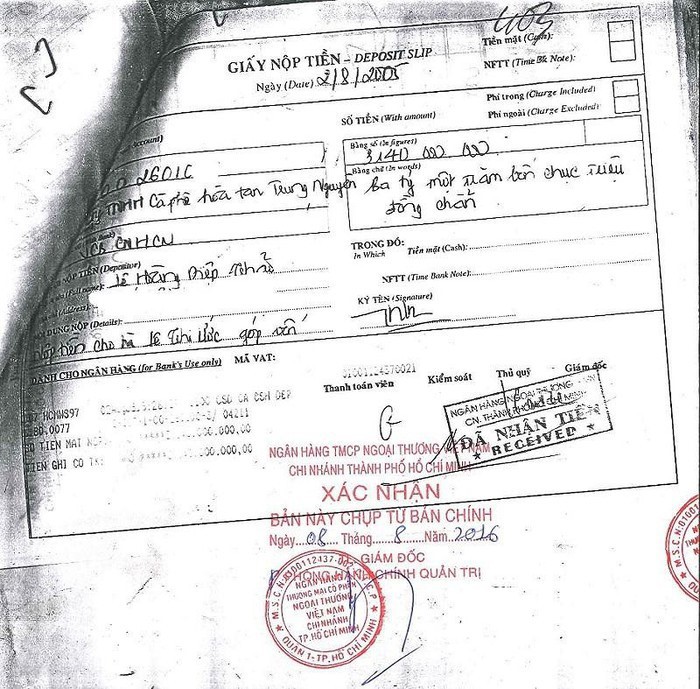 403
GIẤY NỘP TIỀN – DEPOSIT SLIP
Ngày (Date) 2/8/2005
Tiền mặt (Cash):
NFTT (Time Bk Note):
SỐ TIỀN (With amount)
Phí trong (Charge Included)
Phí ngoài (Charge Excluded)
Account)
Bằng số (In figures)
3140 000 000
2601C
Bằng chữ (In words)
TNHH Cà phê hòa tan Trung Nguyên
Ba tỷ một trăm bốn chục triệu
đồng chẵn
VCB CNHCM
TRONG ĐÓ:
In Which
Tiền mặt (Cash):
NỘP TIỀN (Depositor)
Full name):
Lê Hoàng Diệp Thảo
NFTT (Time Bank Note):
(Address):
KÝ TÊN (Signature)
DUNG NỘP (Details):
Nộp tiền cho bà Lê Thị Ước góp vốn
DÀNH CHO NGÂN HÀNG (for Bank's Use only)
MÃ VAT:
01001.24370021
HCMWS97
Thanh toán viên
Kiểm soát
Thủ quỹ
Giám đốc
0077
TIEN MAT
.000.000,00
TIEN GHI CO TK:
.000.000,00
NGÂN HÀNG NGOẠI THƯƠNG VN
CN. THÀNH PHỐ HỒ CHÍ MINH
ĐÃ NHẬN TIỀN
★ RECEIVED ★
NGÂN HÀNG TMCP NGOẠI THƯƠNG VIỆT NAM
CHI NHÁNH THÀNH PHỐ HỒ CHÍ MINH
XÁC NHẬN
BẢN NÀY CHỤP TỪ BẢN CHÍNH
Ngày 08 Tháng 8 Năm 2016
GIÁM ĐỐC
PHÒNG HÀNH CHÍNH QUẢN TRỊ
M.S.C.N:0100112437-002 C.P
NGÂN HÀNG
THƯƠNG MẠI CỔ PHẦN
NGOẠI THƯƠNG
VIỆT NAM
CHI NHÁNH
TP.HỒ CHÍ MINH
QUẬN 1-TP.HỒ CHÍ MINH